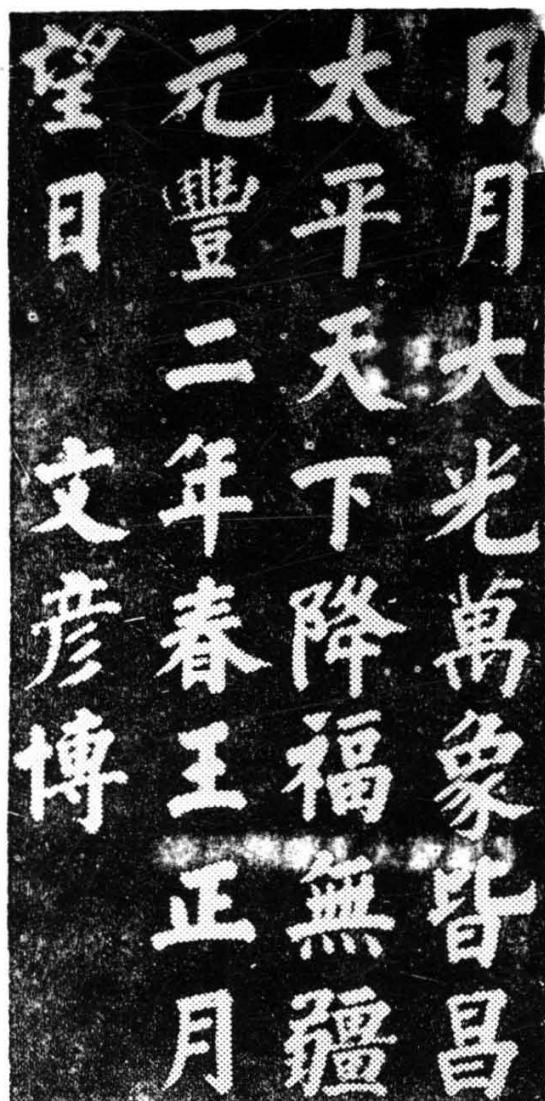 日月大光萬象皆昌
太平天下降福無疆
元豐二年春王正月
望日 文彦博